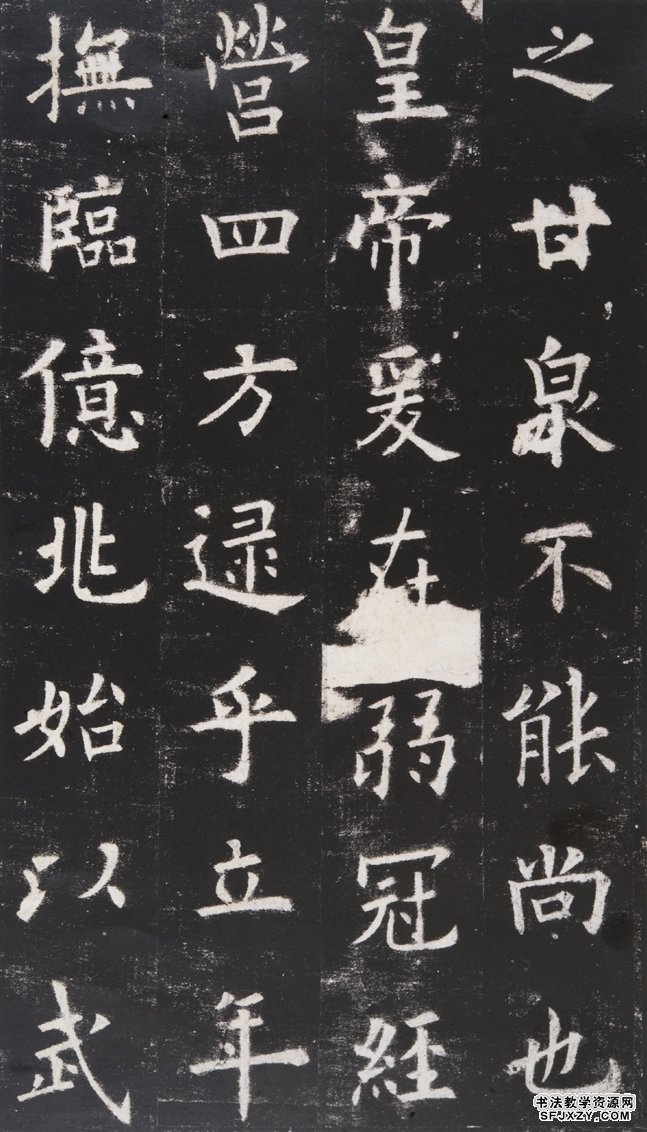 之甘泉不能尚也
皇帝爰在弱冠經
營四方逯乎立年
撫臨億兆始以武
书法教学资源网
SFJXZY.COM